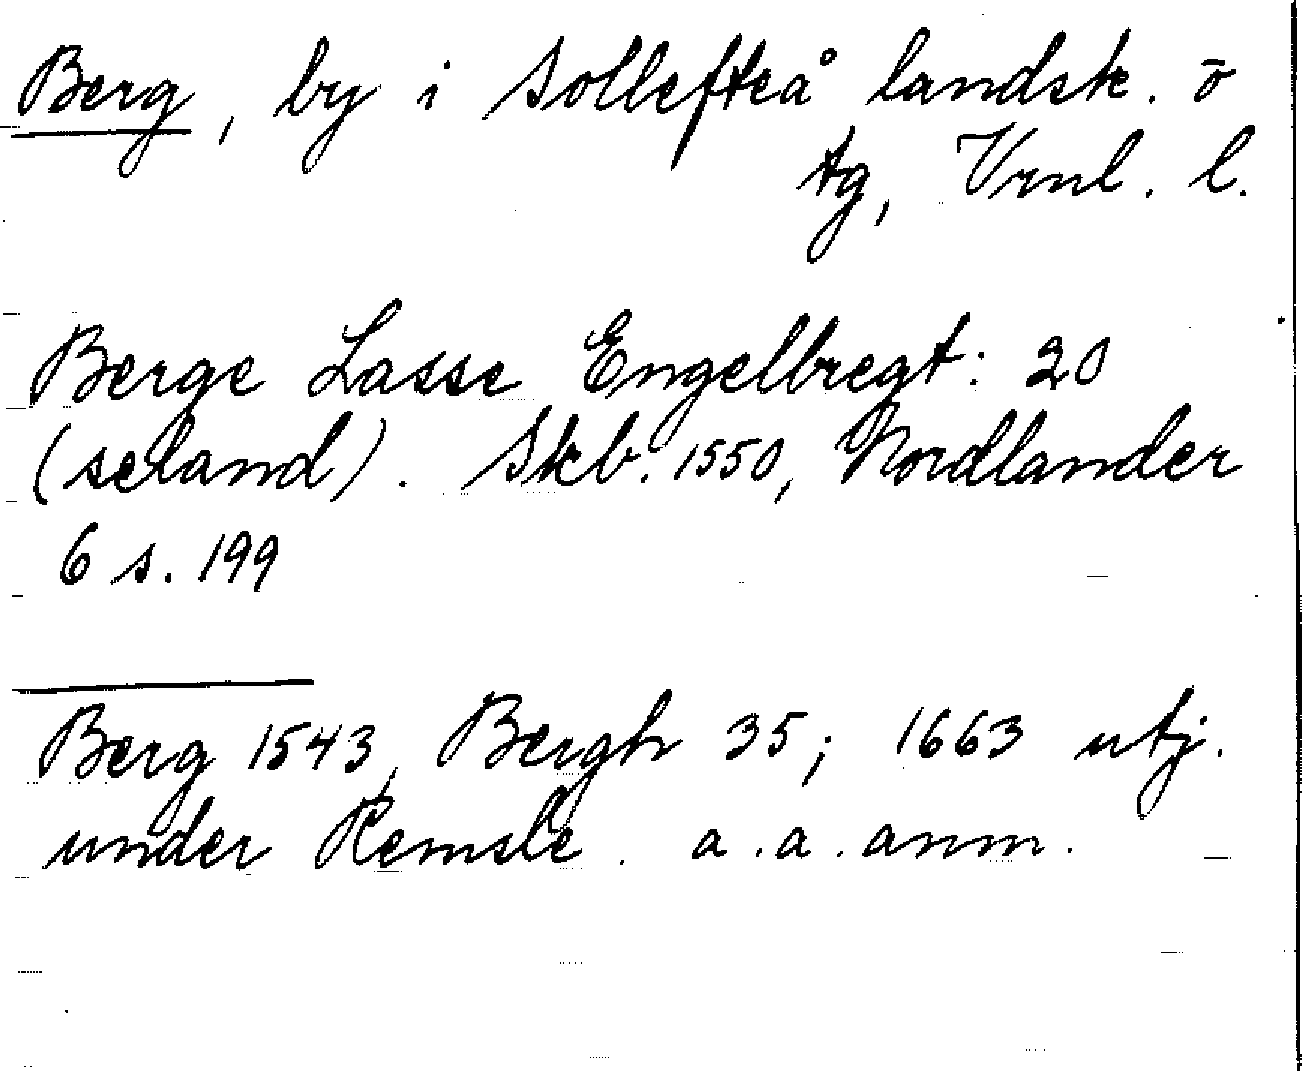 Berg, by i Sollefteå landsk. o
tg, Vrnl. l.
Berge Lasse Engelbregt: 20
(seland). Skb. 1550, Nordlander
6 s. 199
Berg 1543, Bergh 35; 1663 utj.
under Remsle. a.a. anm.